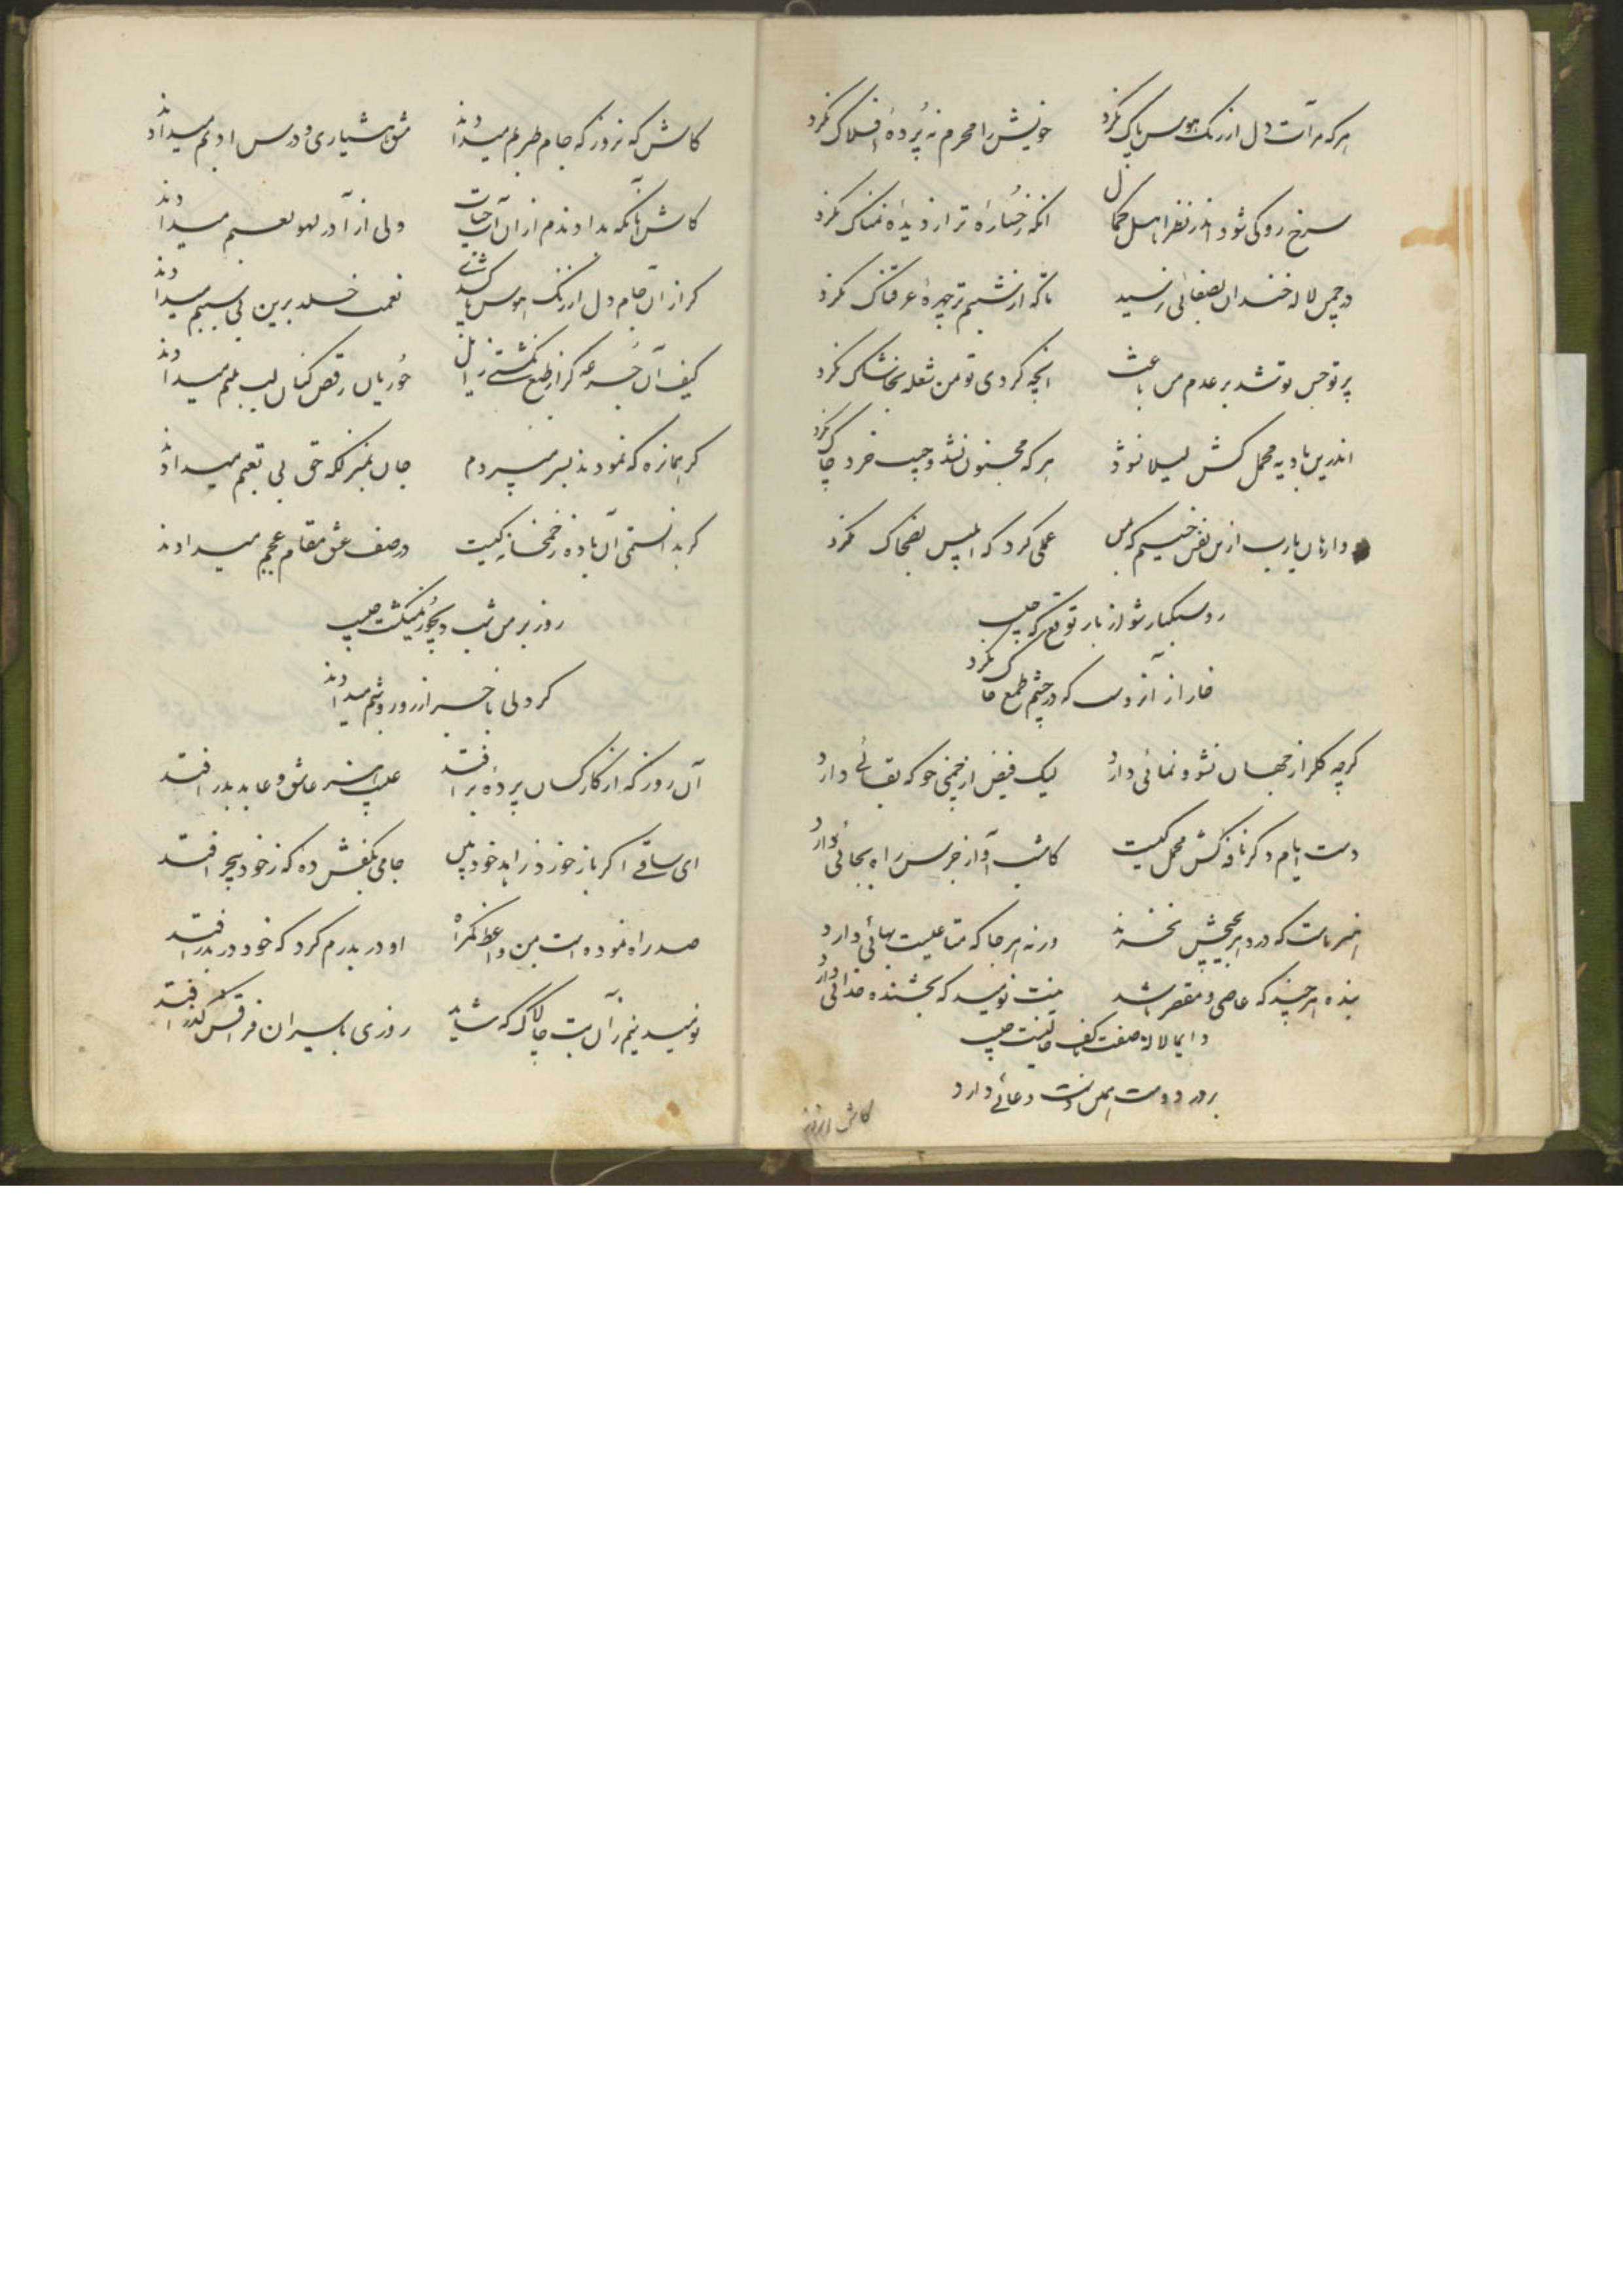 هرکه مرآت دل از زنک هوس پاک نکرد خویش را محرم نه پردهٔ افلاک نکرد
سرخ رو کی شود اندر نظر اهل کمال انکه رخساره تر از دیدهٔ نمناک نکرد
در چمن لاله خندان بصفائی نرسید تا که از شبنم تر چهرهٔ عرقناک نکرد
پرتو حسن تو شد بر عدم من باعث انچه کردی تو بمن شعله بخاشاک نکرد
اندرین بادیه محمل کش لیلا نشود هر که مجنون نشد و جیب خرد چاک نکرد
وارهان یارب ازین نفس خسیسم که بمن عملی کرد که ابلیس بضحاک نکرد
رو سبکبار شو از بار توقع که
خار از آنروست که در چشم طمع خاک نکرد
کرچه کلزار جهان نشو و نمائی دارد لیک فیض از چمنی جو که بقائے دارد
دست ایام دکر ناقه کش محمل کیست کامشب آواز جرس راه بجائی دارد
که درد هر بهیچش نخرند ورنه هر جا که متاعیست بهائی دارد
بنده هر چند که عاصی و مقصر باشد نیست نومید که بخشنده خدائی دارد
دایما لاله صفت بر کف
بر در دوست دعائے دارد
کاش انروز
کاش که نروز که جام طربم میدادند مشق هشیاری و درس ادبم میدادند
کاش آنکه ندادندم از ان آب حیات ولی از آ در لهو لعبم میدادند
کر از ان جام دل از زنک هوس نعمت خلد برین بی سببم میدادند
کیف آن جرعه کر از طبع نکشتے زایل حوریان رقص کنان لب بلبم میدادند
کر همانره که نمودند بسر میبردم جان بمنزلکه حق بی تعبم میدادند
کر بدانستمی آن باده ز خمخانه کیست در صف عشق مقام عجبم میدادند
روز بر من شب دیجور نمیکشت
کر دلی با خبر از روز و شبم میدادند
آن روز که از کار کسان پرده بر افتد عاشق و عابد بدر افتد
ای ساقے اکر باز خورد زاهد خود بین جامی بکفش ده که ز خود بیخبر افتد
صد راه نموده است بمن واعظ کمراه او در بدرم کرد که خود در بدر افتد
نومید نیم زآن بت چالاک که شاید روزی باسیران فراقش کذر افتد